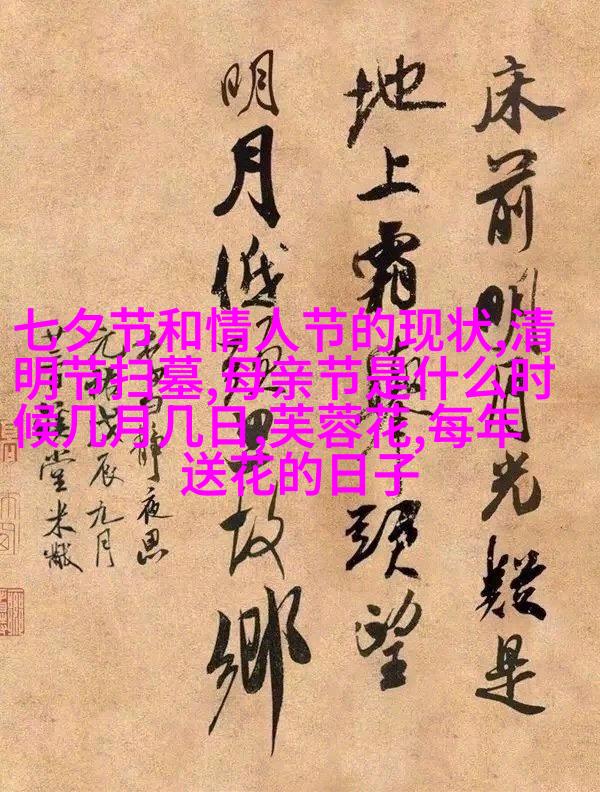 七夕节和情人节的现状,清
明节扫墓,母亲节是什么时
候几月几日,芙蓉花,每年
送花的日子
床前明月光疑是
地上霜舉頭望
明月低頭思故鄉
李白靜夜思
元祐戊辰九月
堂米黻